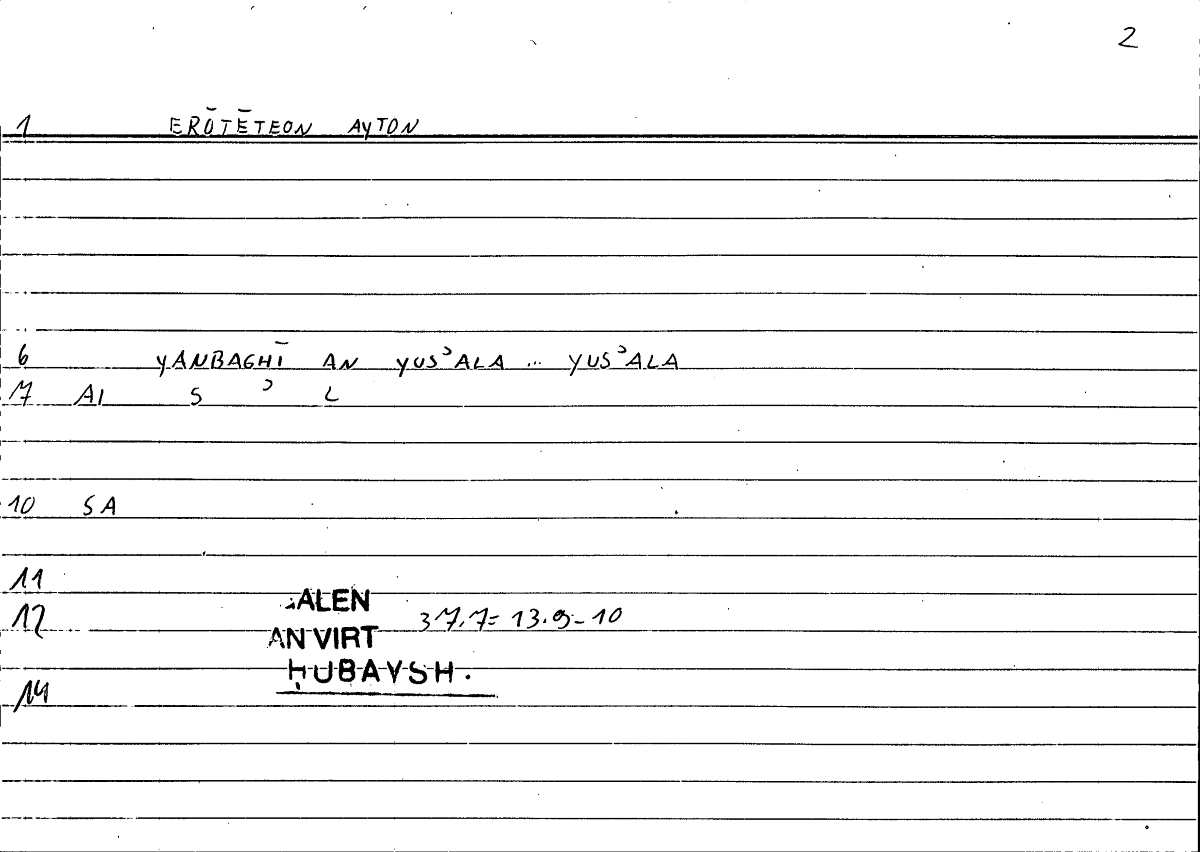 2
1 ERŌTĒTEON AYTON
6 YANBAGHĪ AN YUSʾALA ... YUSʾALA
7 AI S ʾ L
10 SA
11
12 ALEN 37.7= 13.9-10
AN VIRT
ḤUBAYSH.
14